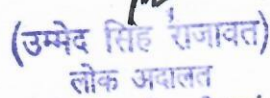 (उम्मेद सिंह राजावत)
लोक अदालत